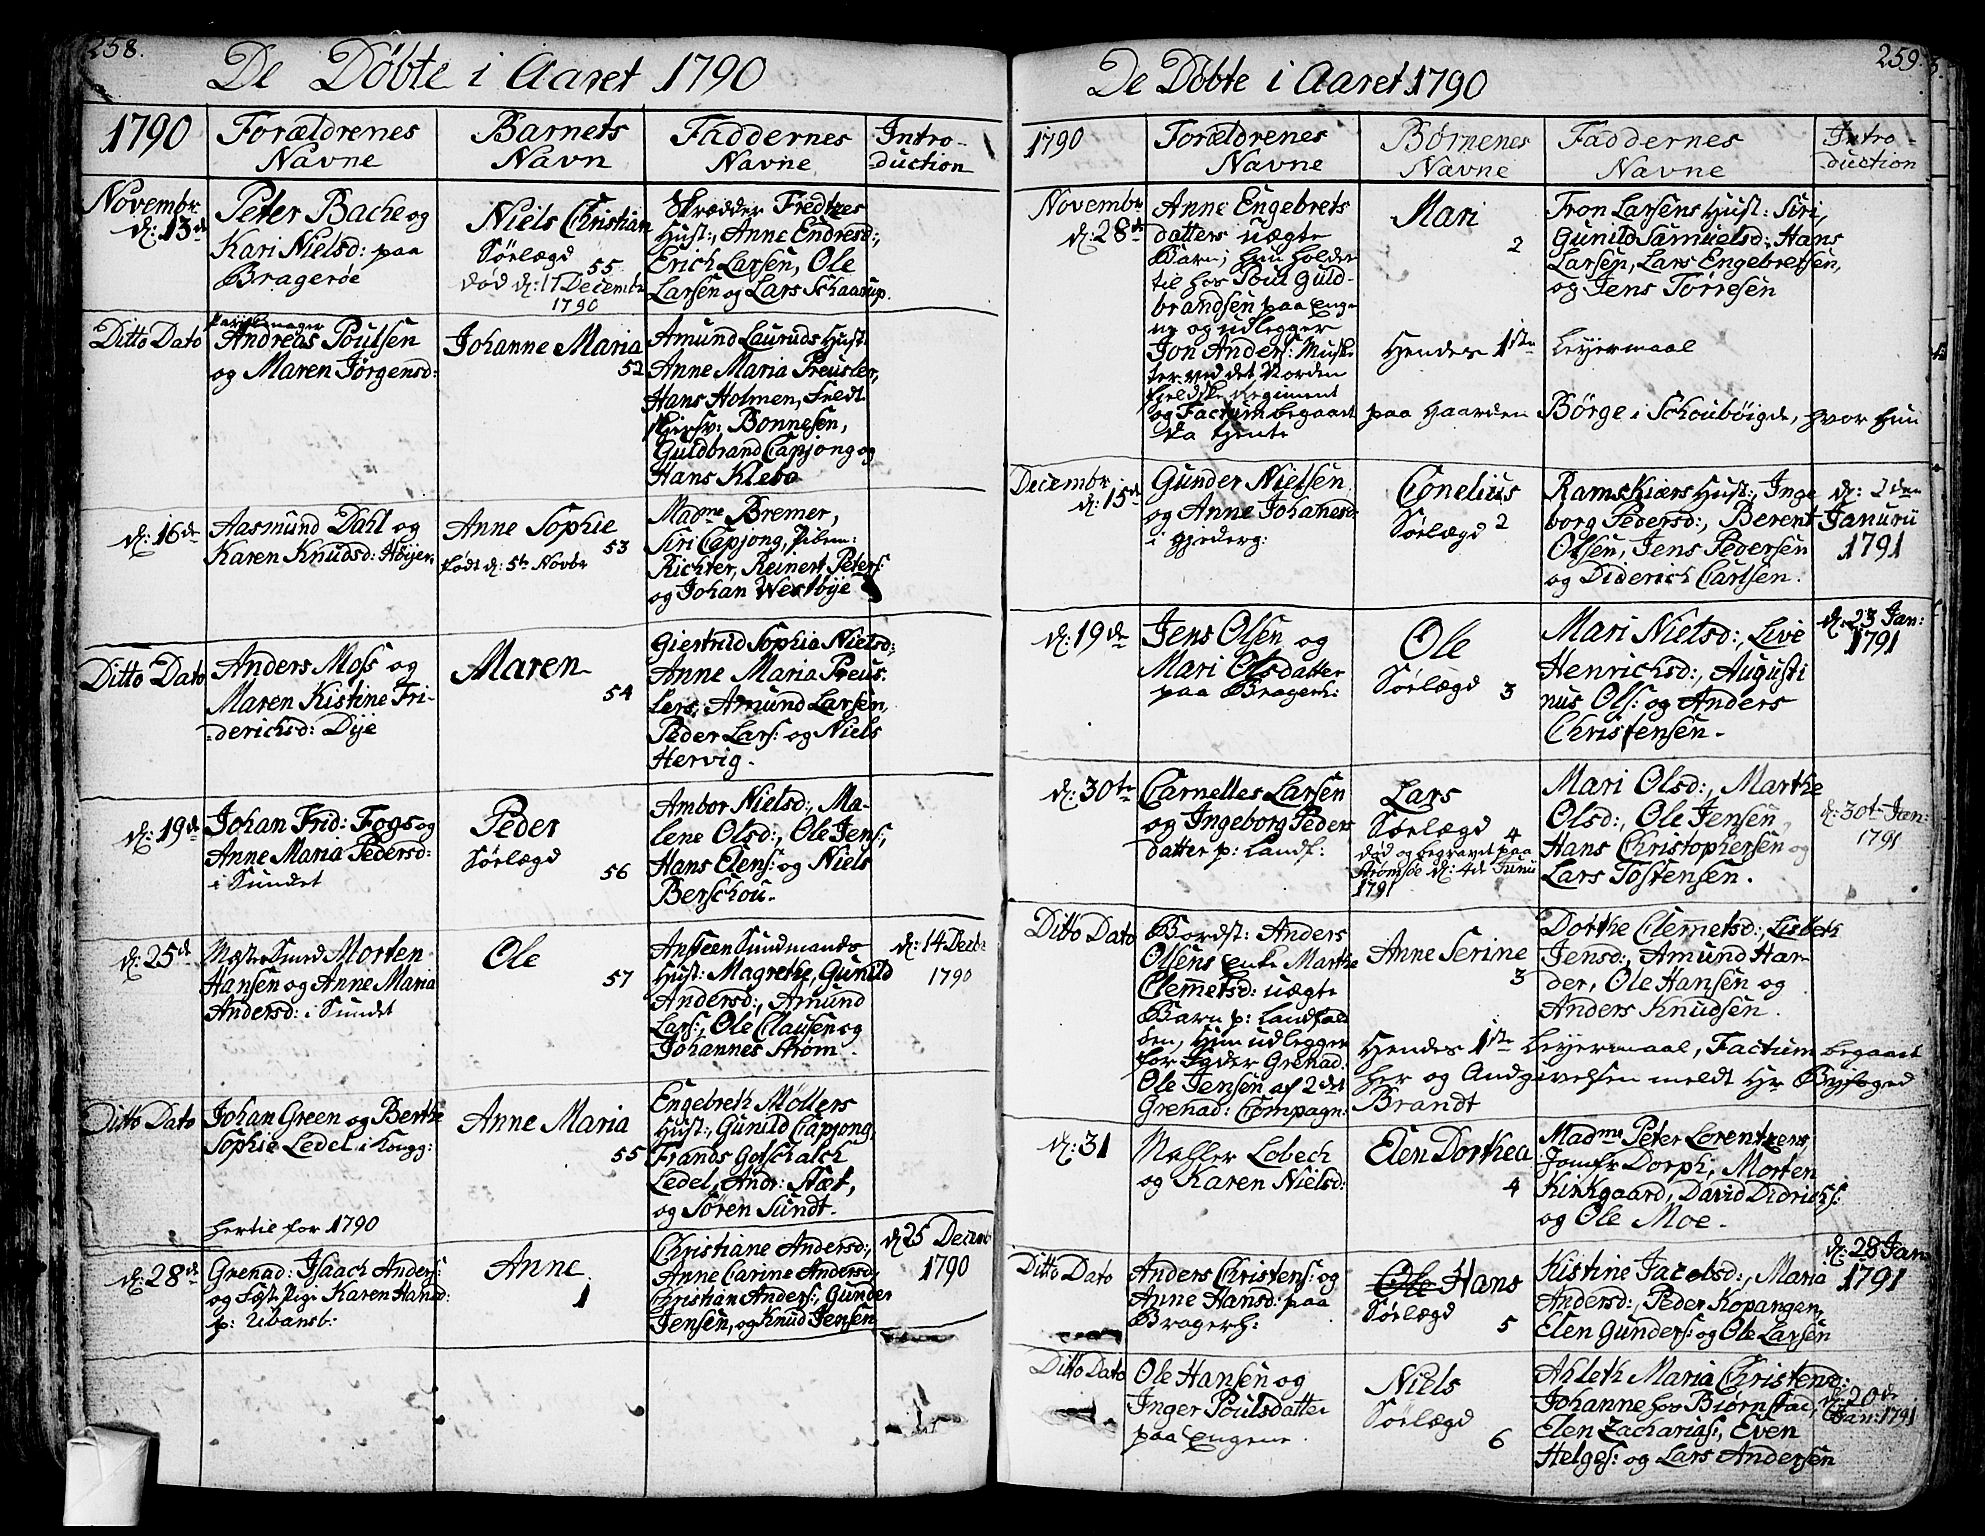 258.
De Døbte i Aaret 1790
1790
Forældrenes
Navne
Barnets
Navn
Faddernes
Navne
Intro-
duction
Novembr
d: 13de
Peter Bache og
Kari Nielsd: paa
Bragerøe
Niels Christian
Sørlægd
55
død d: 17 Decembr
1790
Skrædder Fredtzes
Hust:, Anne Endresd:,
Erich Larsen, Ole
Larsen og Lars Schaarup.
Ditto Dato
Andreas Poulsen
og Maren Jørgensd:
Johanne Maria
52
Amund Lauruds Hust:
Anne Maria Preusler,
Hans Holmen, Fredt
Bonnesen,
Guldbrand Capjong og
Hans Klebo
d: 16de
Aasmund Dahl og
Karen Knudsd: Høijen
Anne Sophie
53
født d: 5te Novbr
Madme Bremer,
Siri Capjong, Pilem:
Richter, Reinert Peters:
og Johan Westbye
Ditto Dato
Anders Moss og
Maren Kistine Fri-
-derichsd: Dije
Maren
54
Giertrud Sophia Nielsd:,
Anne Maria Preus-
lers, Amund Larsen,
Peder Lars: og Niels
Hervig.
d: 19de
Johan Frid: Fogs og
Anne Maria Pedersd:
i Sundet
Peder
Sørlægd
56
Ambor Nielsd:, Ma-
lene Olsd:, Ole Jens:,
Hans Elens: og Niels
Berschou.
d: 25de
Mester Smed Morten
Hansen og Anne Maria
Andersd: i Sundet
Ole
57
Ansteen Sundmands
Hust: Magrethe, Gunild
Andersd:, Amund
Lars:, Ole Clausen og
Johannes Strøm.
d: 14 Decbr
1790
Ditto Dato
Johan Green og Berthe
Sophie Ledel i Kongg:
Anne Maria
55
Engebreth Møllers
Hust:, Gunild Capjong,
Frands Gotschalch
Ledel, Andr: Næt,
og Søren Sundt.
hertil for 1790
d: 28de
Grenad: Isaach Anders:
og Fæste Pige Karen Hansd:
p: Ubansb:
Anne
1
Christiane Andersd:,
Anne Carine Andersd:,
Christian Anders:, Gunder
Jensen, og Knud Jensen
d: 25 Decemb
1790
259.
De Døbte i Aaret 1790
1790
Forældrenes
Navne
Børnenes
Navne
Faddernes
Navne
Intro-
duction
Novembr
d: 28de
Anne Engebrets
datters uægte
Barn; hun holder
til hos Poul Guld-
brandsen paa Enge-
ne og udlegger
Jon Anders: Muske
ter ved det Norden
fieldske regiment
og Factum begaaet paa Gaarden Børge i Schoubøigde, hvor hun
da tjente
Mari
2
Hendes 1ste Leyermaal
Tron Larsens Hust: Siri,
Gunild Samuelsd:, Hans
Larsen, Lars Engebretsen,
og Jens Torresen
Decembr
d: 15de
Gunder Nielsen
og Anne Johannesd:
i Gjederg:
Conelius
Sørlægd 2
Ramskiærs Hust:, Inge
borg Pedersd:, Berent
Olsen, Jens Pedersen
og Diderich Carlsen.
d: 2den
Januru
1791
d: 19de
Jens Olsen og
Mari Olsdatter
paa Bragerh:
Ole
Sørlægd 3
Mari Nielsd:, Live
Henrichsd:, Augusti
nus Ols: og Anders
Christensen.
d: 23 Jan:
1791
d: 30te
Carnelles Larsen
og Ingeborg Peders
datter p: Landf:
Lars
Sørlægd 4
død og begravet paa
Strømsøe d: 4de
1791
Mari Olsd:, Marthe
Olsd:, Ole Jensen,
Hans Christophersen og
Lars Tostensen.
d: 30te Jan:
1791
Ditto Dato
Bordst: Anders
Olsens enke Marthe
Clemetsd: uægte
Barn p: Landfald
øen, Hun udlegger
for Fader Grenad:
Ole Jensen af 2det
Grenad: Compagn:
Anne Serine
3
Hendes 1ste Leyermaal, Factum begaaet
her og Andgivelsen meldt Hr Byfoged
Brandt
Dorthe Clemetsd:, Lisbeth
Jensd:, Amund Har-
der, Ole Hansen og
Anders Knudsen.
d: 31
Møller Lobech
og Karen Nielsd:
Elen Dorthea
4
Madme Peter Lorentzens
Jomfr Dorph, Morten
Kirkgaard, David Didrichs:
og Ole Moe.
Ditto Dato
Anders Christens: og
Anne Hansd: paa
Bragerh:
Ole Hans
Sørlægd
5
Kistine Jacobsd:, Maria
Andersd:, Peder Kopangen,
Elen Gunders: og Ole Larsen
d: 28 Jan
1791
Ditto Dato
Ole Hansen og
Inger Poulsdatter
paa Engene.
Niels
Sørlægd
6
Ahleth Maria Christensd:
Johanne hos Biørn
Elen Zacharias:, Even
Helges: og Lars Andersen
d: 20de
Jan: 1791